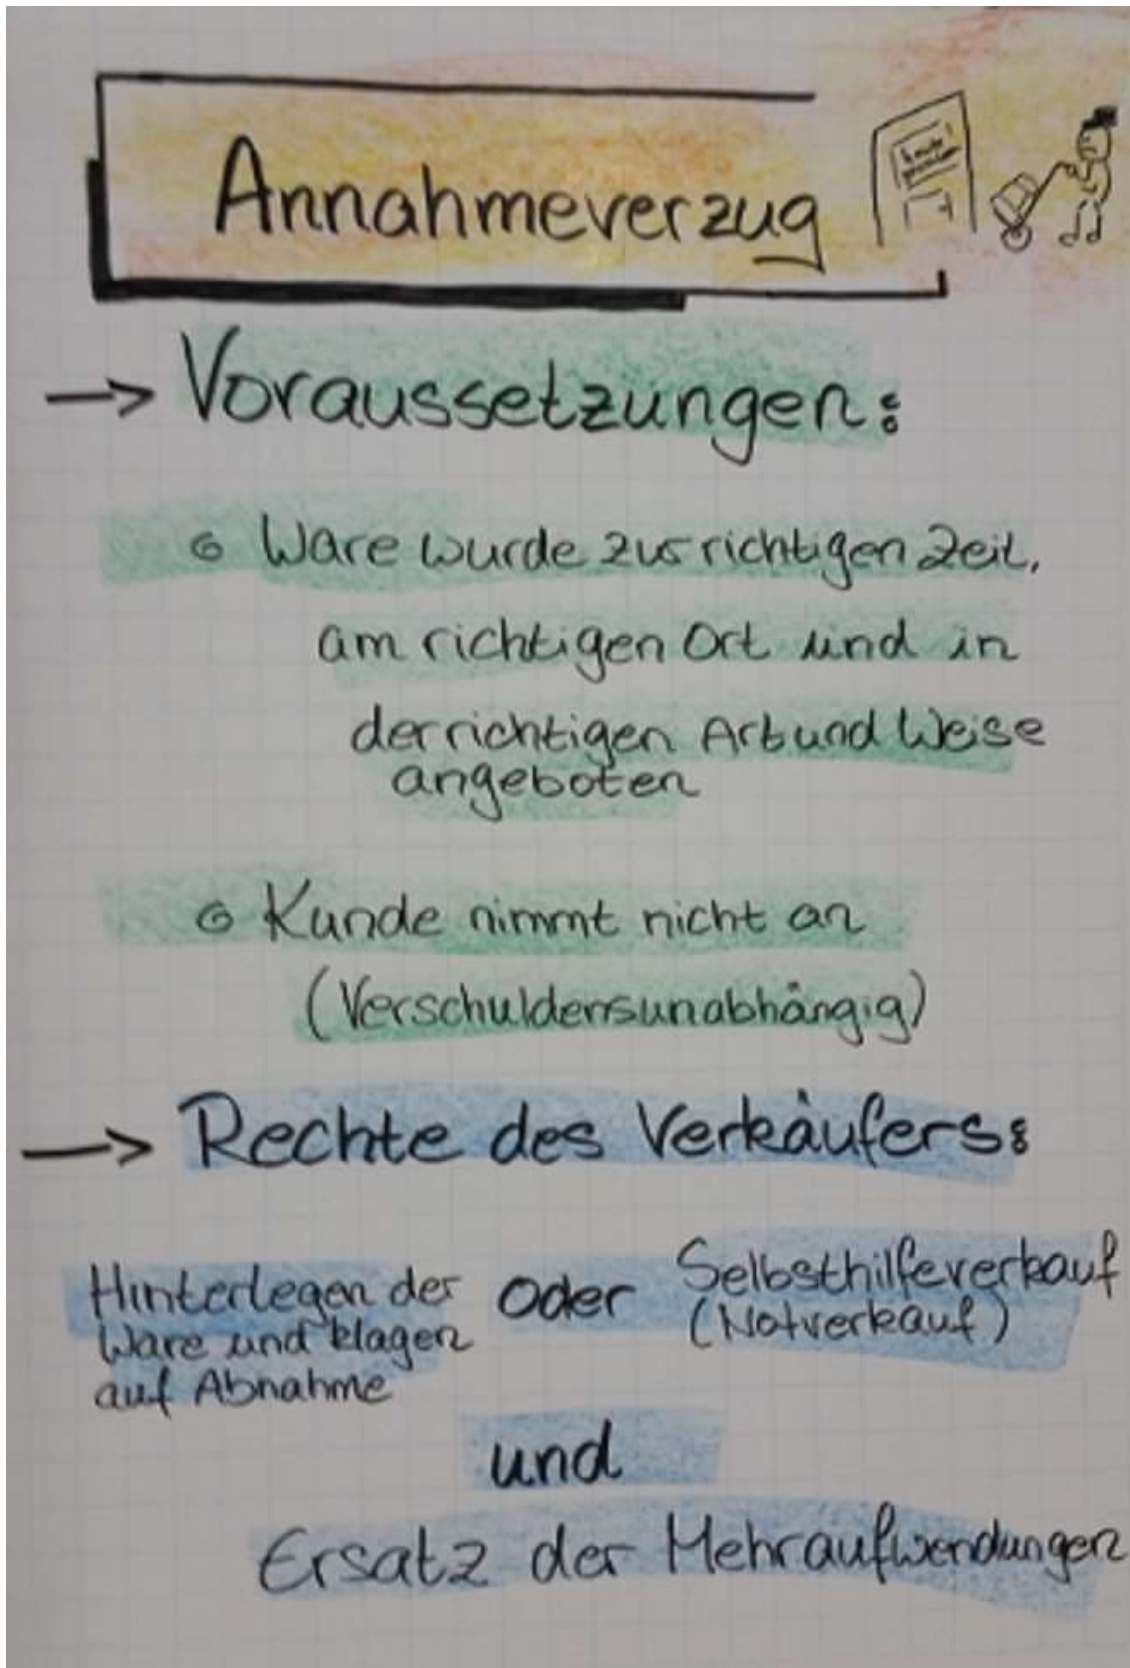 Annahmeverzug
heute
geschlossen
→ Voraussetzungen:
Ware wurde zur richtigen Zeit,
am richtigen Ort und in
der richtigen Art und Weise
angeboten
Kunde nimmt nicht an
(Verschuldensunabhängig)
→ Rechte des Verkäufers:
Hinterlegen der
Ware und klagen
auf Abnahme
oder
Selbsthilfeverkauf
(Notverkauf)
und
Ersatz der Mehraufwendungen